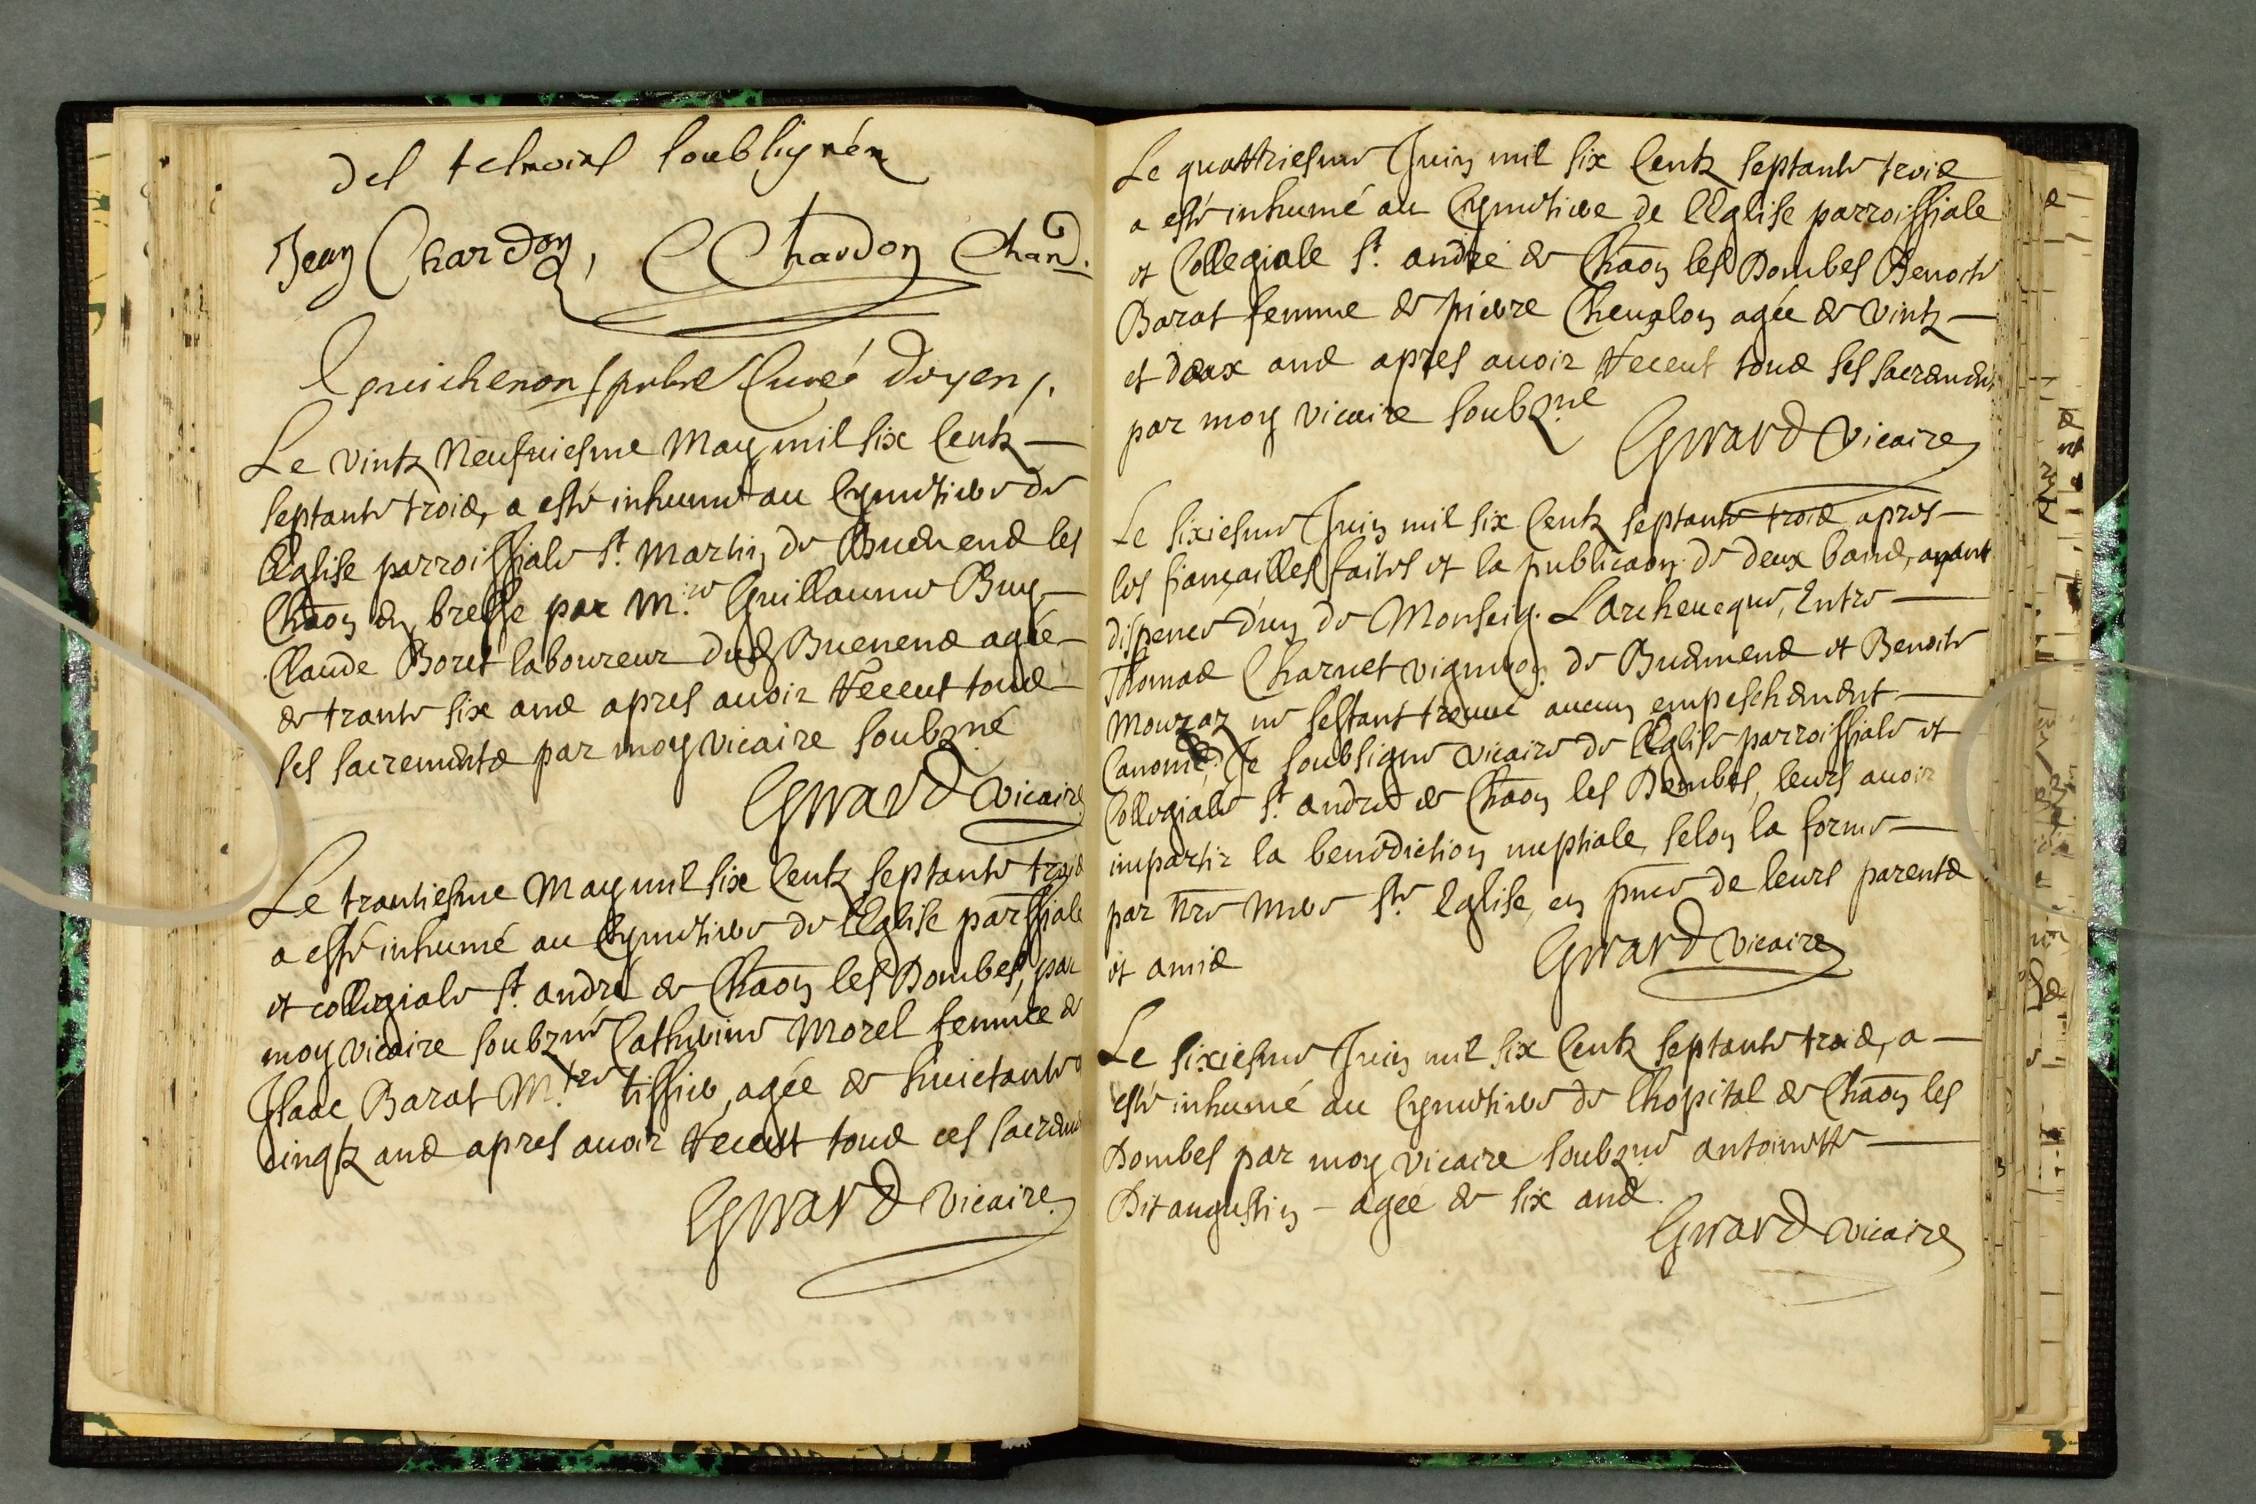 des tesmoins soubsignéz
Jean Chardon, C Chardon Chan.
Guichenon pbre Curé doyen
Le vintz Neufuiesme May mil six Centz
septante trois, a esté inhumé au Cymetiere de
lEglise parroissiale St. Martin de Buenens les
Chaōn en bresse par Mre Guillaume Buy
Claude Boret laboureur dud Buenens agée
de trante six ans apres auoir Receut tous
ses sacrements par moy vicaire soubzné
Girard vicaire
Le trantiesme May mil six Centz septante trois
a esté inhumé au Cymetiere de lEglise parssiale
et collegiale St. andre de Chaōn les Dombes, par
moy vicaire soubzné Catherine Morel femme de
Isaac Barat Mtre tissier, agée de huictante
cinqtz ans apres auoir Receut tous ces sacrem
Girard vicaire
Le quattriesme Juin mil six Centz septante trois
a esté inhumé au Cymetiere de lEglise parroissiale
et Collegiale St. andre de Chaōn les Dombes Benoite
Barat femme de pierre agée de vintz
et deux ans apres auoir Receut tous ses sacrements
par moy vicaire soubzné
Girard vicaire
Le sixiesme Juin mil six Centz septante trois apres
les fiançailles faites et la publicaōn de deux bans, ayant
dispence d'un de Monseig. L'archeuesque, Entre
Thomas Charnet vigneron de Buenens et Benoite
ne sestant treuué aucun empeschement
Canonic, Je soubsigne vicaire de lEglise parroissiale et
Collegiale St. andre de Chaōn les Dombes, leurs auoir
impartir la benediction nuptiale, selon la forme
par nr̄e Mere Ste Eglise, en pn̄ce de leurs parents
et amis
Girard vicaire
Le sixiesme Juin mil six Centz septante trois, a
esté inhumé au Cymetiere de lhopital de Chaōn les
Dombes par moy vicaire soubzné antoinette
Ditaugustin - agée de six ans
Girard vicaire